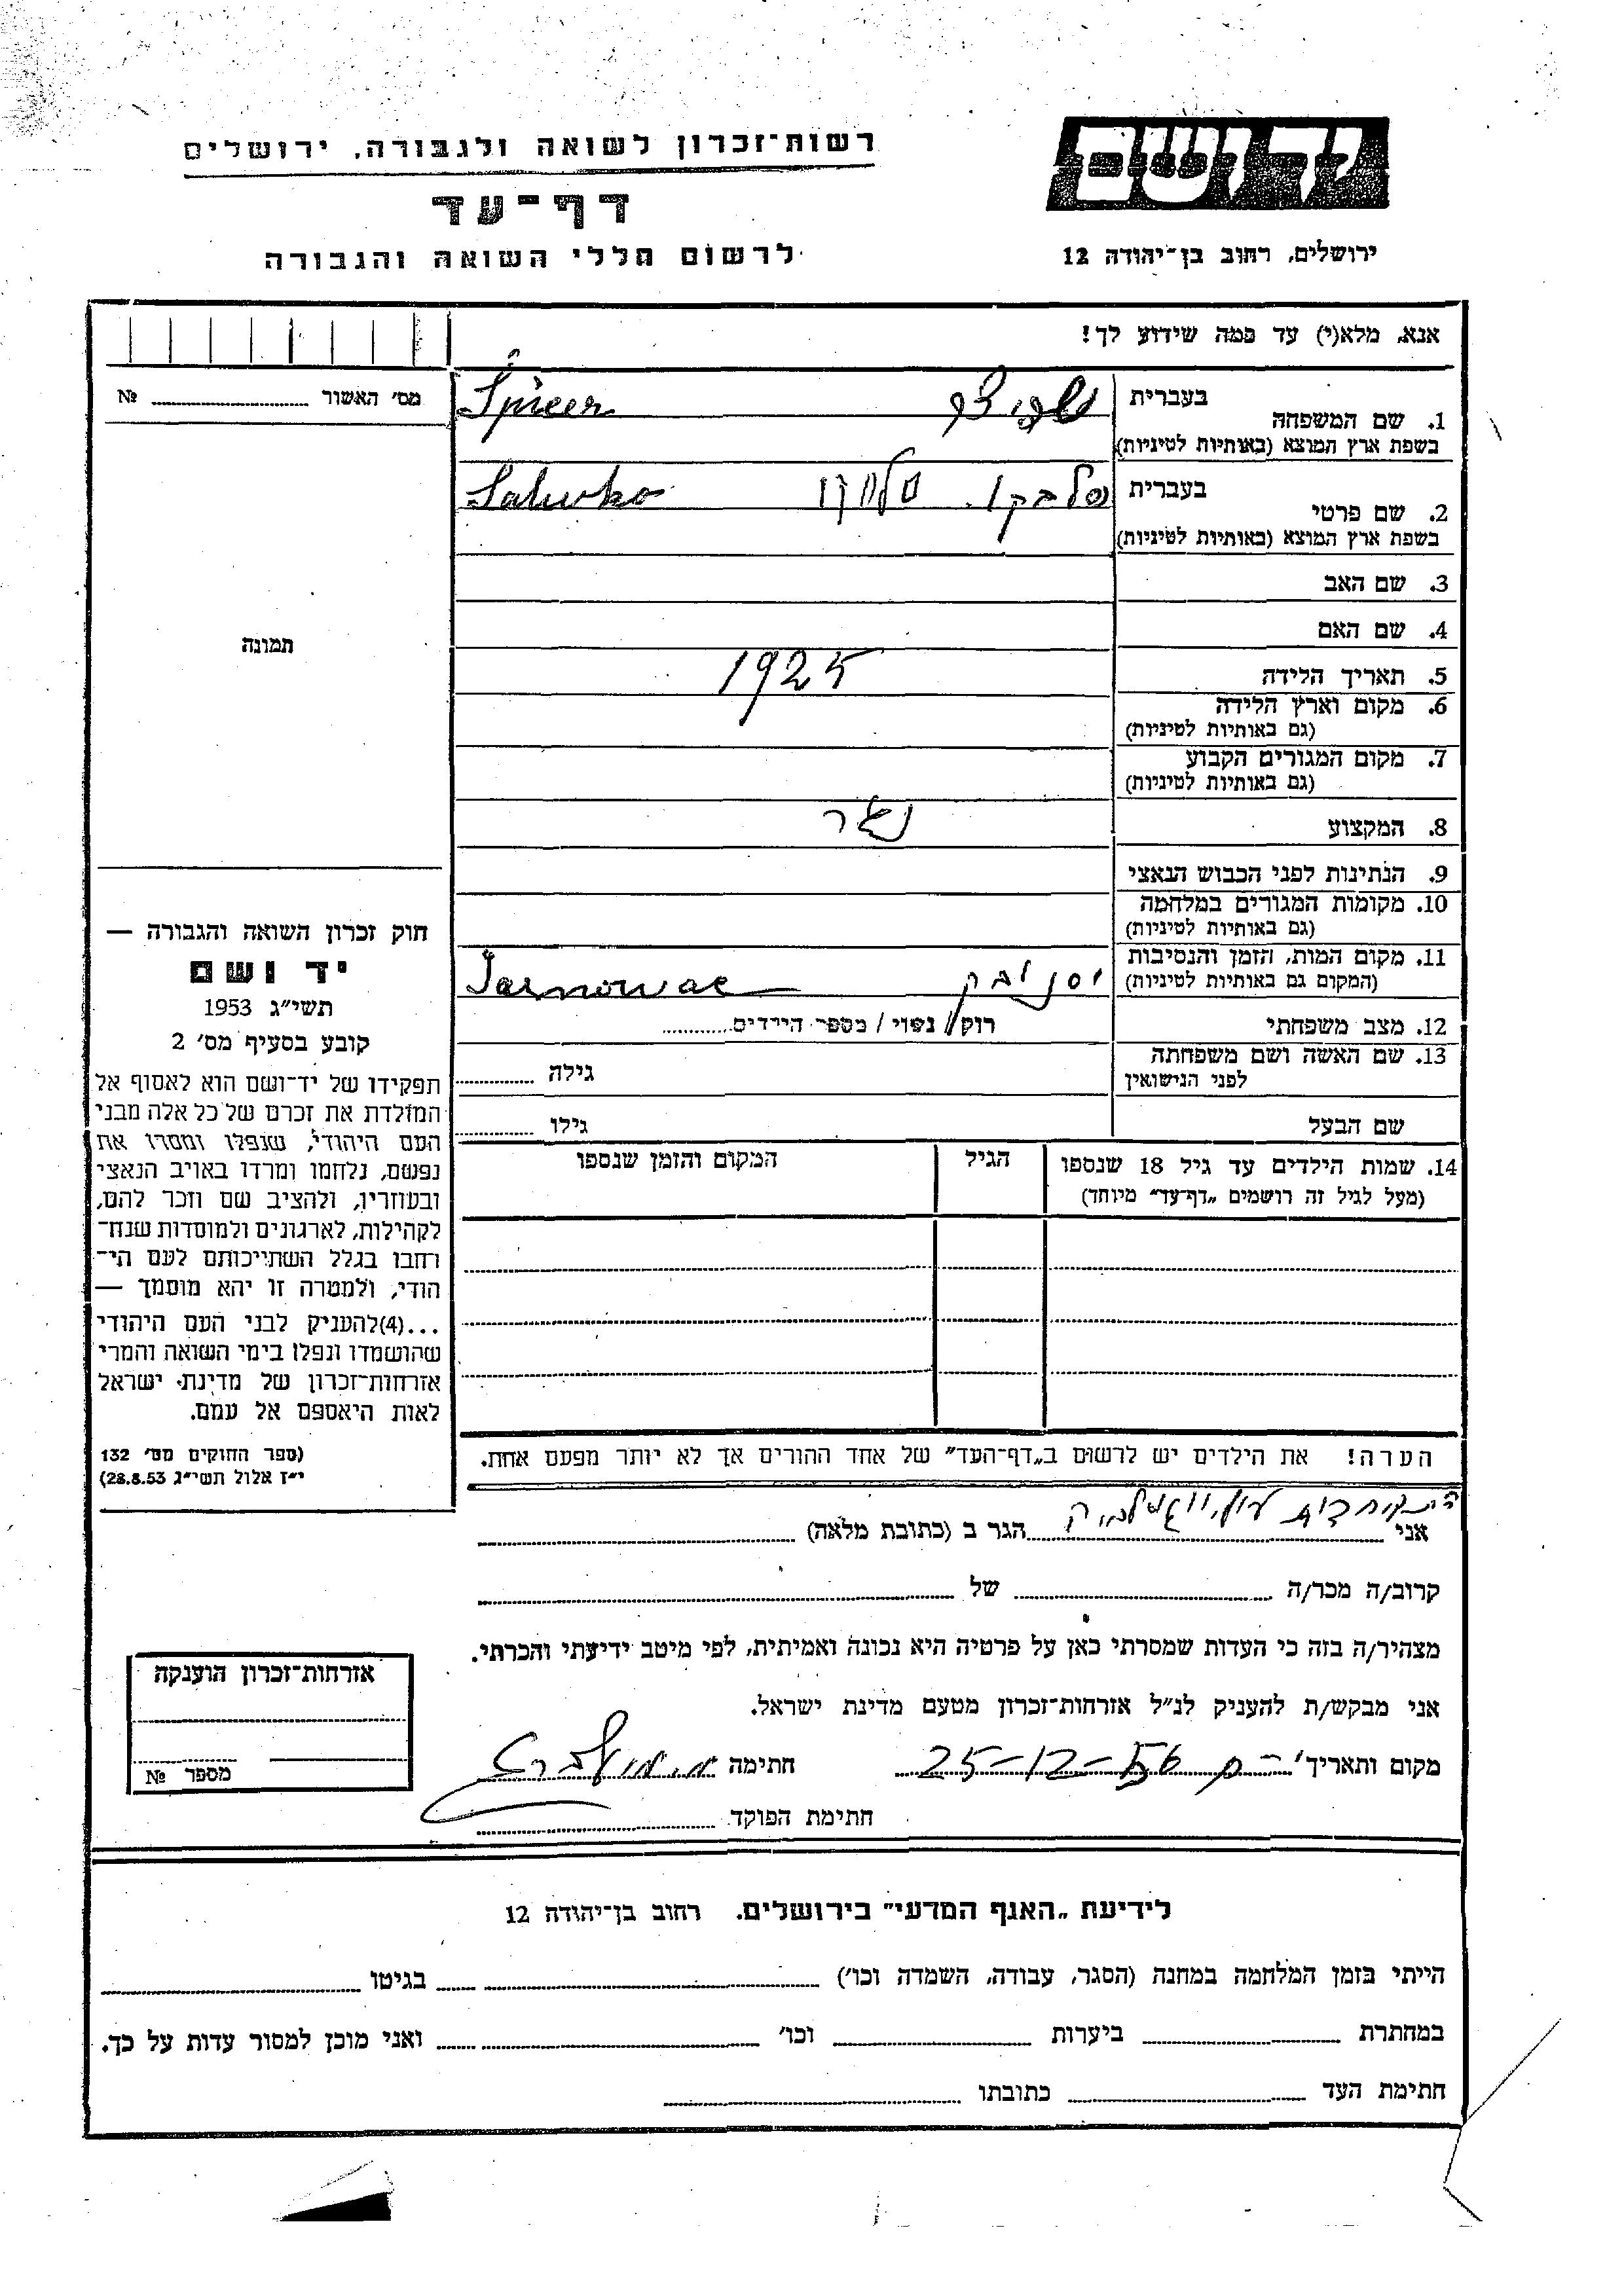 רשות־זכרון לשואה ולגבורה, ירושלים
יד ושם
דף־עד
לרשום חללי השואה והגבורה
ירושלים, רחוב בן־יהודה 12
אנא, מלא(י) עד כמה שידוע לך!
מס׳ האשור № ........
1. שם המשפחה
בעברית
Špicer
בשפת ארץ המוצא (באותיות לטיניות)
2. שם פרטי
בעברית סלבקו
בשפת ארץ המוצא (באותיות לטיניות)
3. שם האב
4. שם האם
תמונה
5. תאריך הלידה 1925
6. מקום וארץ הלידה
(גם באותיות לטיניות)
7. מקום המגורים הקבוע
(גם באותיות לטיניות)
8. המקצוע נער
9. הנתינות לפני הכבוש הנאצי
10. מקומות המגורים במלחמה
(גם באותיות לטיניות)
11. מקום המות, הזמן והנסיבות
(המקום גם באותיות לטיניות)
12. מצב משפחתי רווק / נשוי / מספר הילדים ........
13. שם האשה ושם משפחתה
לפני הנישואין
גילה ........
שם הבעל גילו ........
14. שמות הילדים עד גיל 18 שנספו הגיל המקום והזמן שנספו
(מעל לגיל זה רושמים „דף־עד" מיוחד)
הערה! את הילדים יש לרשום ב„דף־העד" של אחד ההורים אך לא יותר מפעם אחת.
חוק זכרון השואה והגבורה —
יד ושם
תשי״ג 1953
קובע בסעיף מס׳ 2
תפקידו של יד־ושם הוא לאסוף אל
המולדת את זכרם של כל אלה מבני
העם היהודי, שנפלו ומסרו את
נפשם, נלחמו ומרדו באויב הנאצי
ובעוזריו, ולהציב שם וזכר להם,
לקהילות, לארגונים ולמוסדות שנח־
רבו בגלל השתייכותם לעם הי־
הודי, ולמטרה זו יהא מוסמך —
...(4)להעניק לבני העם היהודי
שהושמדו ונפלו בימי השואה והמרי
אזרחות־זכרון של מדינת ישראל
לאות היאספם אל עמם.
(ספר החוקים מס׳ 132
י״ז אלול תשי״ג 28.8.53)
אני ........ הגר ב (כתובת מלאה) ........
קרוב/ה מכר/ה ........ של ........
מצהיר/ה בזה כי העדות שמסרתי כאן על פרטיה היא נכונה ואמיתית, לפי מיטב ידיעתי והכרתי.
אני מבקש/ת להעניק לנ״ל אזרחות־זכרון מטעם מדינת ישראל.
מקום ותאריך 25-12-56 חתימה
חתימת הפוקד ........
אזרחות־זכרון הוענקה
מספר №
לידיעת „האגף המדעי" בירושלים. רחוב בן־יהודה 12
הייתי בזמן המלחמה במחנה (הסגר, עבודה, השמדה וכו׳) ........ בגיטו ........
במחתרת ........ ביערות ........ וכו׳ ........ ואני מוכן למסור עדות על כך.
חתימת העד ........ כתובתו ........